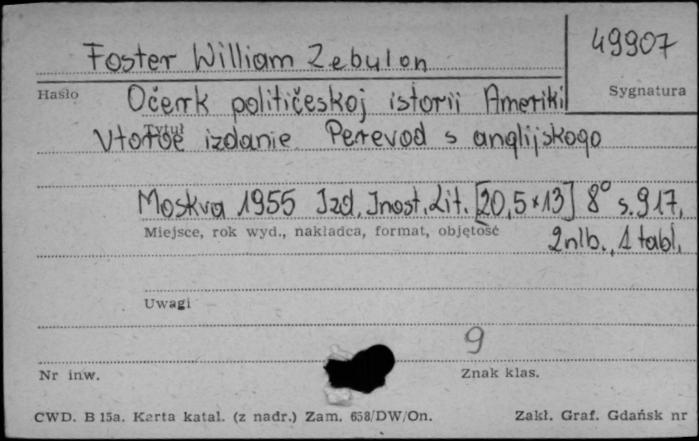 Foster William Zebulon
49907
Hasło
Sygnatura
Očerk političeskoj istorii Ameriki
Tytuł
Vtoroe izdanie Perevod s anglijskogo
Moskva 1955 Izd. Inost. Lit. [20,5×13] 8° s. 917,
Miejsce, rok wyd., nakładca, format, objętość
2nlb., 1 tabl.
Uwagi
9
Nr inw.
Znak klas.
CWD. B 15a. Karta katal. (z nadr.) Zam. 658/DW/On.
Zakł. Graf. Gdańsk nr